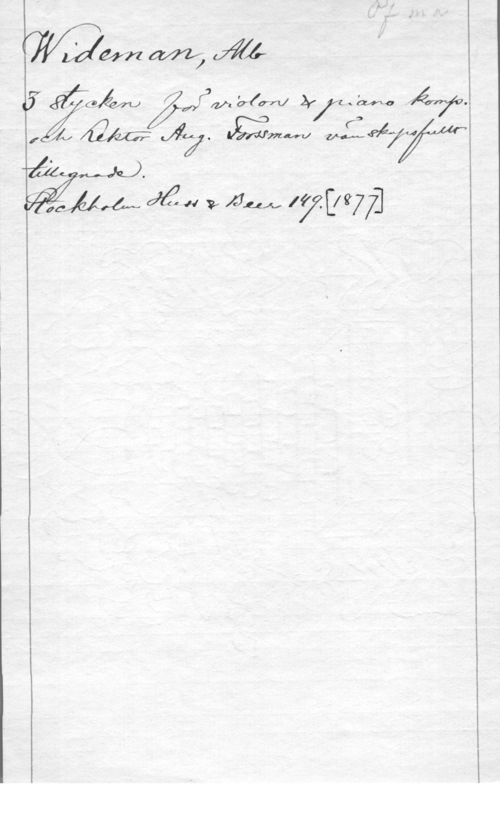 Of ma
Wideman, Alb
3 stycken för violon & piano komp.
och Rektor Aug. Forssman vänskapsfullt
tillegnade).
Stockholm Huss & Beer 149. [1877]